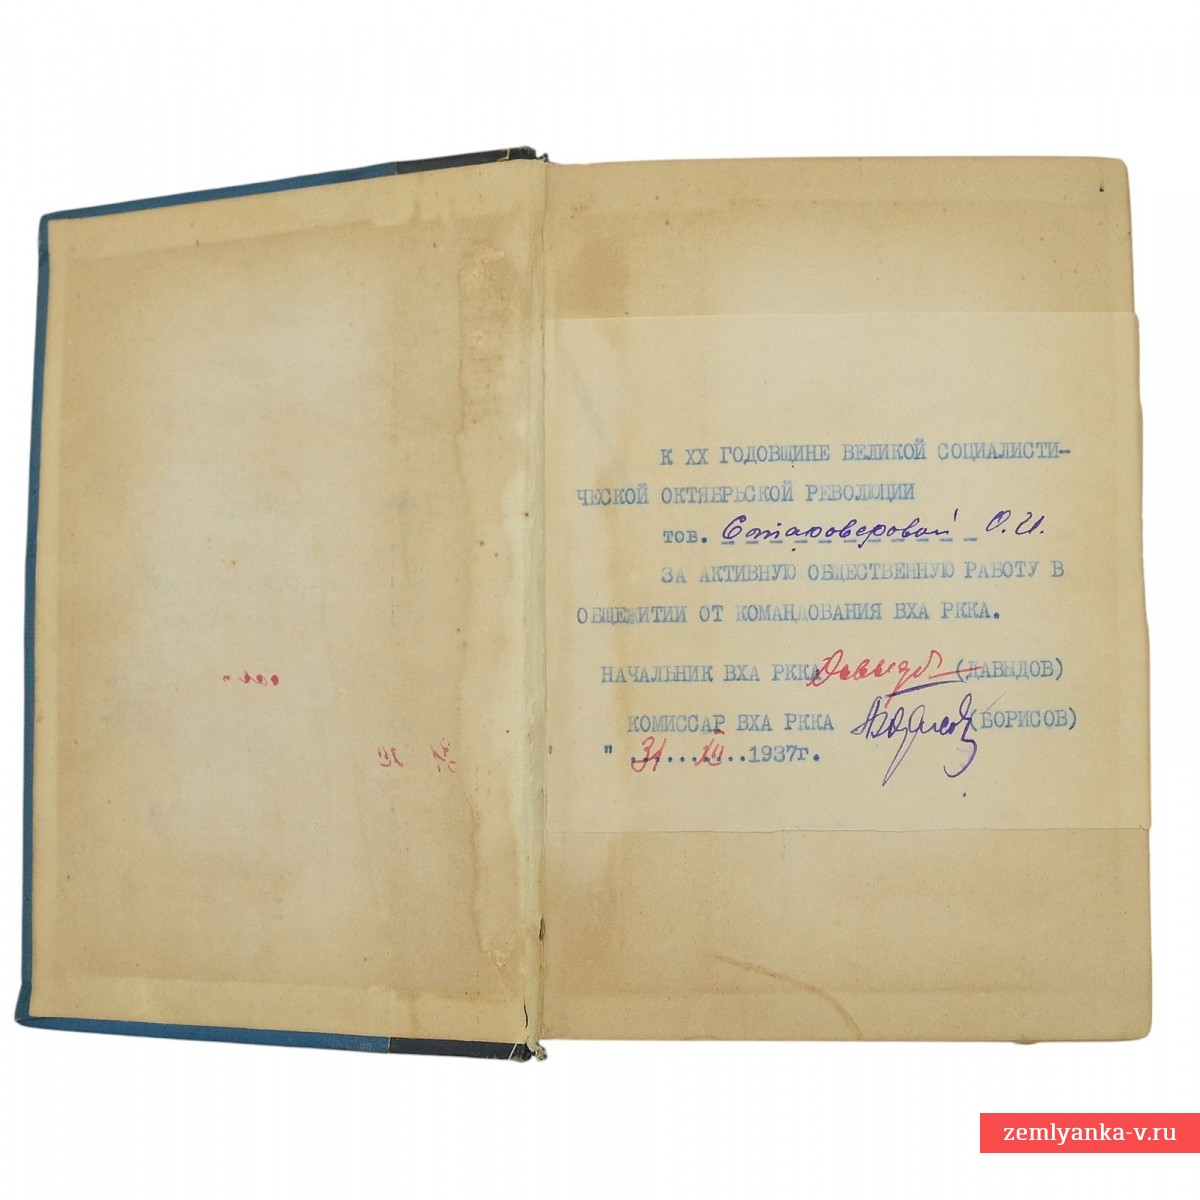 К XX ГОДОВЩИНЕ ВЕЛИКОЙ СОЦИАЛИСТИ-
ЧЕСКОЙ ОКТЯБРЬСКОЙ РЕВОЛЮЦИИ
тов. Староверовой О.И.
ЗА АКТИВНУЮ ОБЩЕСТВЕННУЮ РАБОТУ В
ОБЩЕЖИТИИ ОТ КОМАНДОВАНИЯ ВХА РККА.
НАЧАЛЬНИК ВХА РККА Давыдов (ДАВЫДОВ)
КОМИССАР ВХА РККА Борисов (БОРИСОВ)
" 31 XII 1937г.
zemlyanka-v.ru